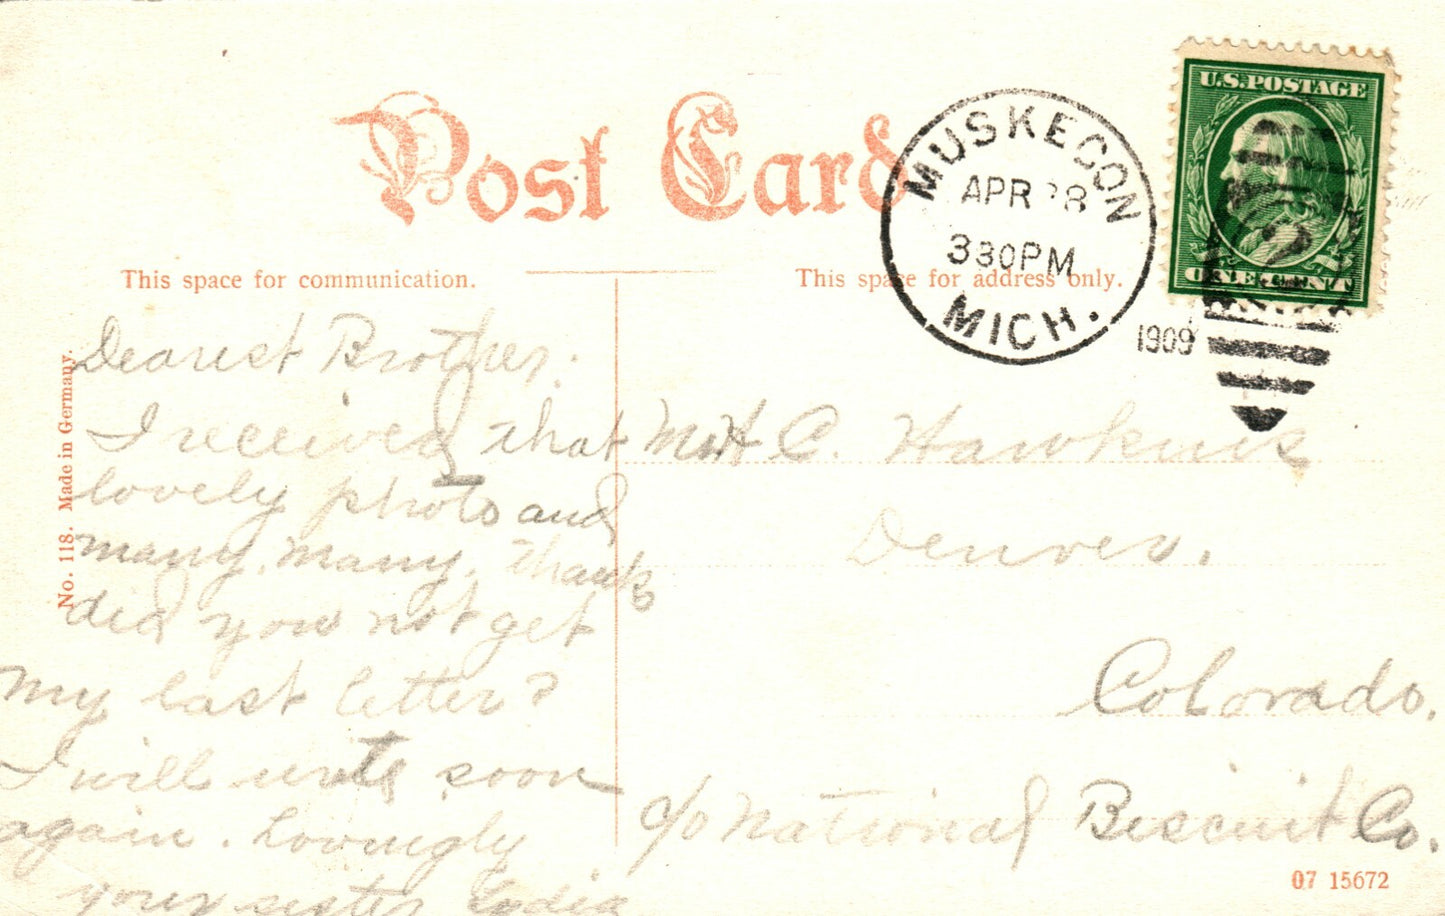 Post Card
MUSKEGON
APR 28
330PM
MICH.
1909
U.S.POSTAGE
ONE CENT
This space for communication.
This space for address only.
No. 118. Made in Germany.
Dearest Brother.
I received that
lovely photo and
many, many, thanks
did you not get
My last letter?
I will write soon
again. Lovingly
your sister Lydia
Mr H C. Hawkins
Denver.
Colorado.
c/o National Biscuit Co.
07 15672